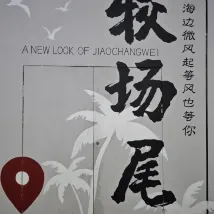 海边微风起等风也等你
较场尾
A NEW LOOK OF JIAOCHANGWEI